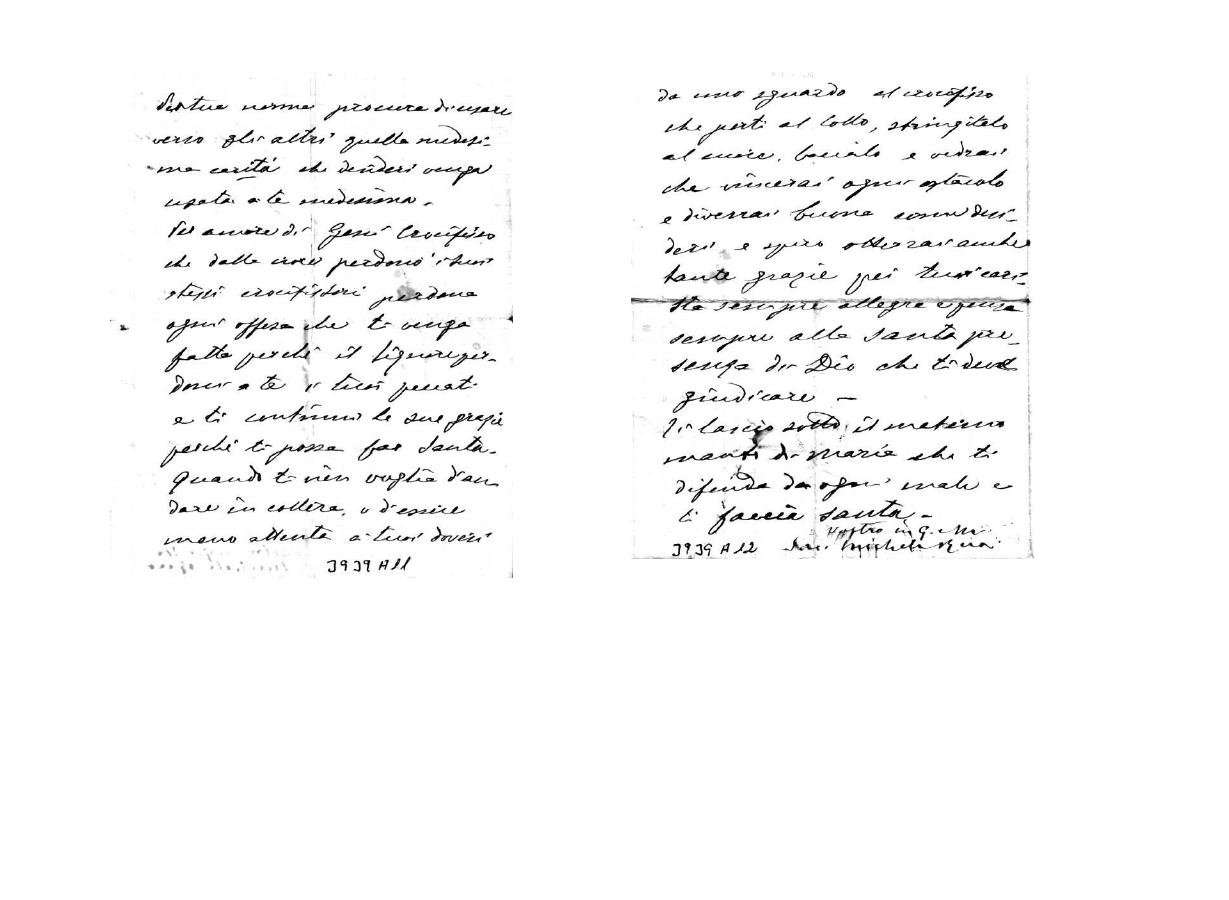 Per tua norma procura di usare
verso gli altri quella medesi-
ma carità che desideri venga
usata a te medesima.
Per amore di Gesù Crocifisso
che dalla croce perdonò i suoi
stessi crocifissori perdona
ogni offesa che ti venga
fatta perché il Signore per-
doni a te i tuoi peccati
e ti continui le sue grazie
perché ti possa far Santa.
Quando ti vien voglia d'an-
dare in collera, o d'essere
meno attenta a' tuoi doveri
3939 A 11
da uno sguardo al crocifisso
che porti al collo, stringitelo
al cuore, bacialo e vedrai
che vincerai ogni ostacolo
e diverrai buona come desi-
deri, e spero otterrai anche
tante grazie pei tuoi cari.
Sta sempre allegra e pensa
sempre alla santa pre-
senza di Dio che ti deve
giudicare –
Ti lascio sotto il materno
manto di Maria che ti
difenda da ogni male e
ti faccia santa –
in G. e M.
3939 A 12 Sac. Michele Rua